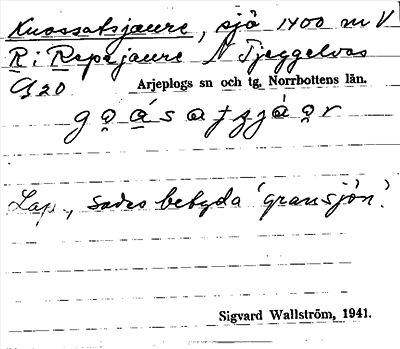 Kuossatsjaure, sjö 1400 m V
R i Repejaure N Tjeggelvas
G20 Arjeplogs sn och tg, Norrbottens län.
g o̭ á̱ s a t z j á o̭ r
Lap., sades betyda 'gransjön'.
Sigvard Wallström, 1941.